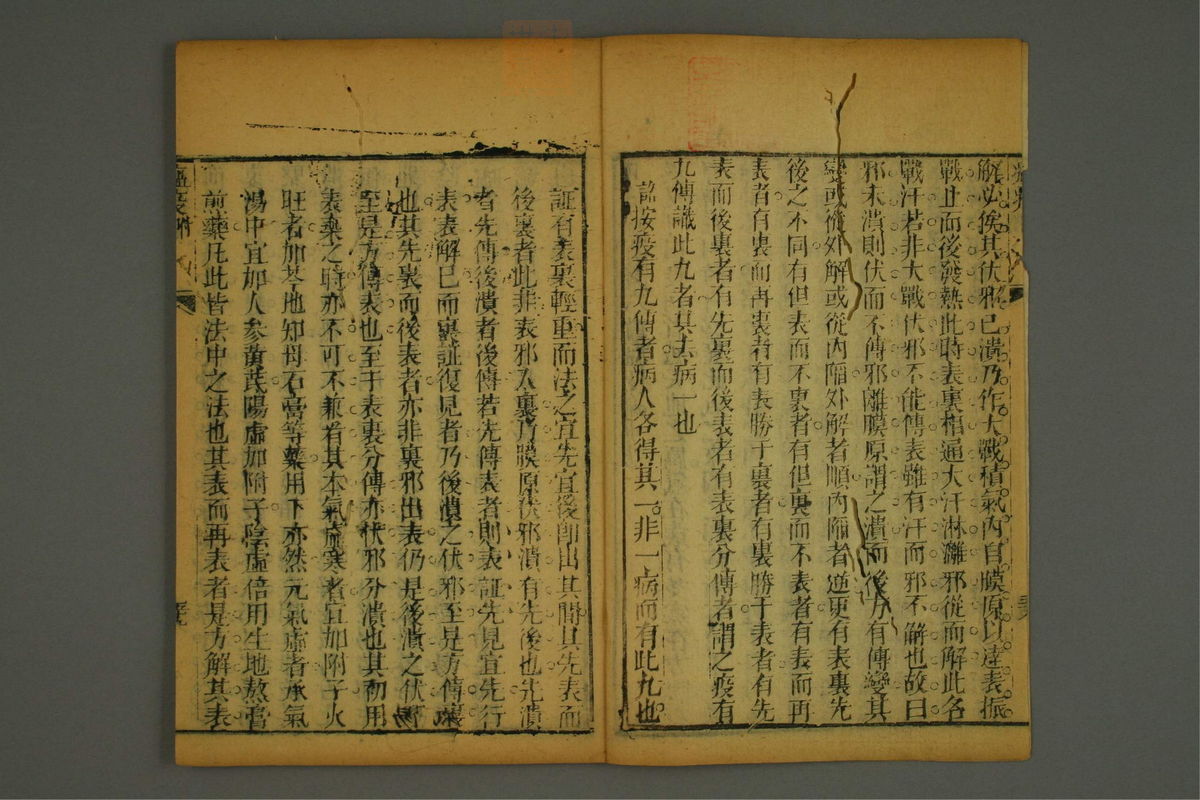 解必俟其伏邪已潰乃作大戰積氣內自膜原以達表振
戰止而後發熱此時表裏相通大汗淋灕邪從而解此名
戰汗若非大戰伏邪不能傳表雖有汗而邪不解也故曰
邪未潰則伏而不傳邪離膜原謂之潰而後方有傳變其
變或從外解或從內陷外解者順內陷者逆更有表裏先
後之不同有但表而不裏者有但裏而不表者有表而再
表者有裏而再裏者有表勝于裏者有裏勝于表者有先
表而後裏者有先裏而後表者有表裏分傳者謂之疫有
九傳識此九者其去病一也
詺按疫有九傳者病人各得其一非一病而有此九也
証有表裏輕重而法之宜先宜後即出其間其先表而
後裏者此非表邪入裏乃膜原伏邪潰有先後也先潰
者先傳後潰者後傳若先傳表者則表証先見宜先行
表表解已而裏証復見者乃後潰之伏邪至是方傳裏
也其先裏而後表者亦非裏邪出表仍是後潰之伏邪
至是方傳表也至于表裏分傳亦伏邪分潰也其初用
表藥之時亦不可不兼看其本氣虛寒者宜加附子火
旺者加芩地知母石膏等藥用下亦然元氣虛者承氣
湯中宜加人參黃芪陽虛加附子陰虛倍用生地熬膏
前藥凡此皆法中之法也其表而再表者是方解其表